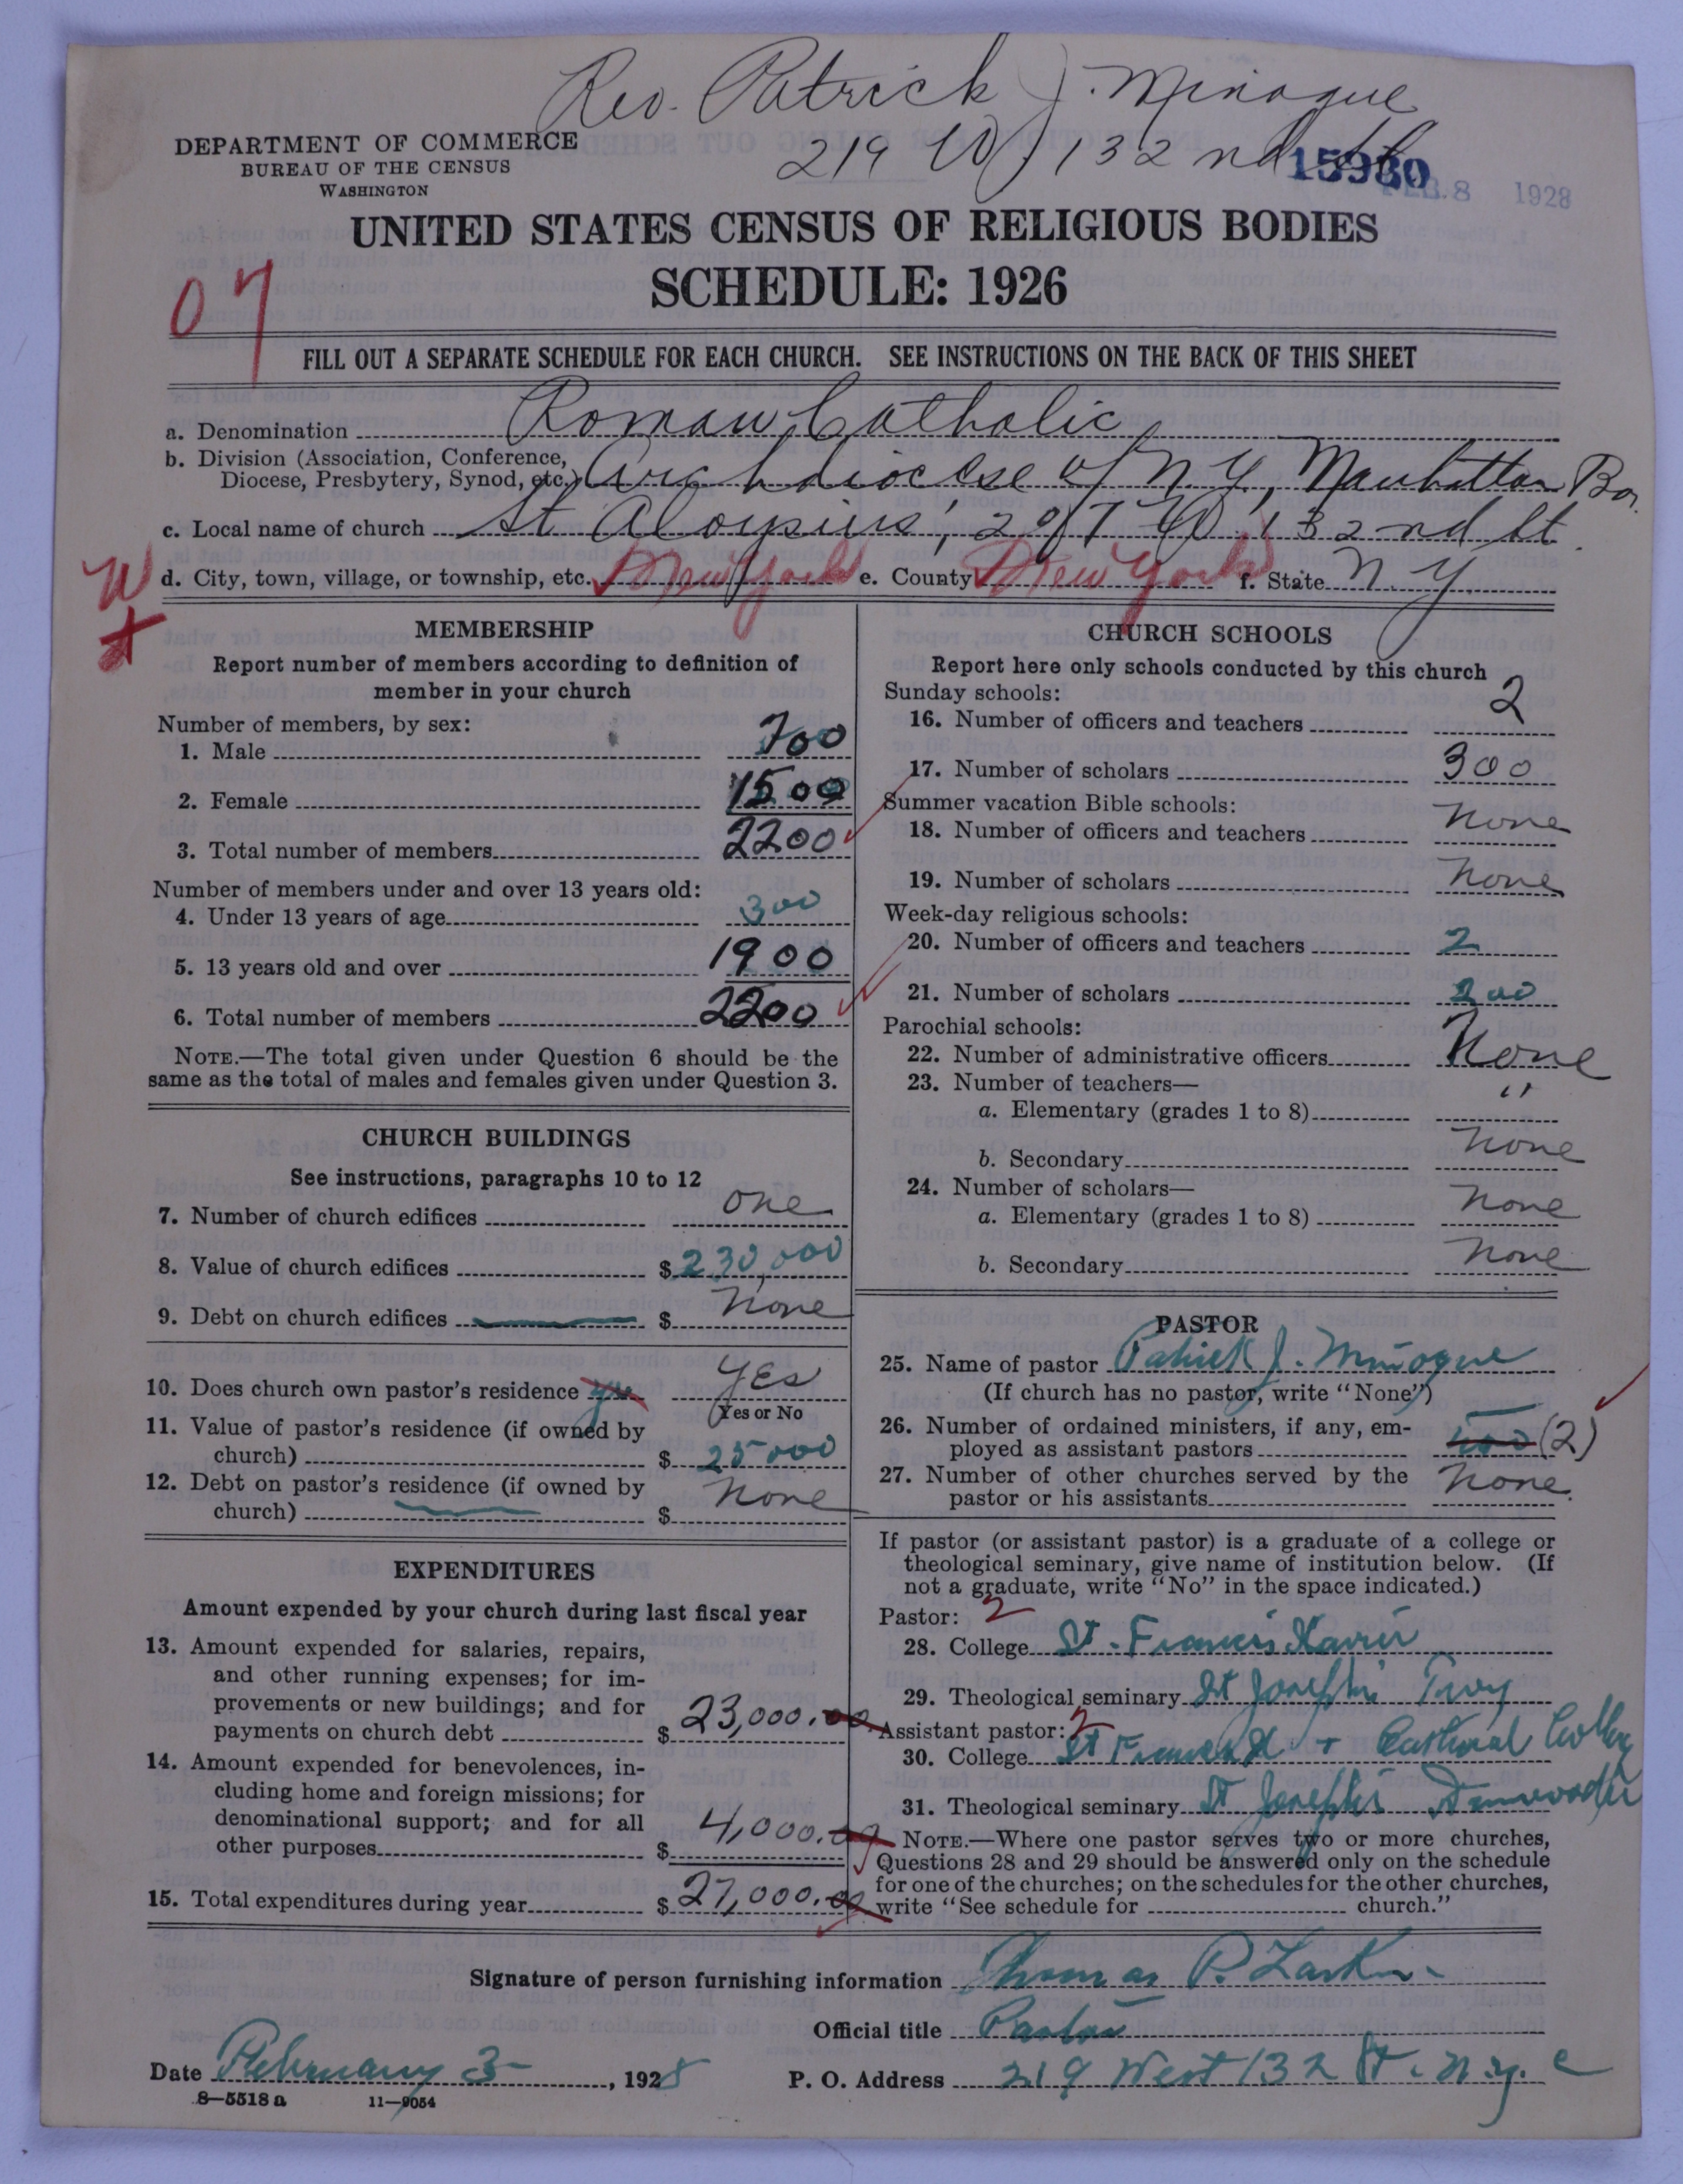 Rev. Patrick J. Minogue
219 W 132nd St
DEPARTMENT OF COMMERCE
BUREAU OF THE CENSUS
WASHINGTON
15980
FEB. 8 1928
UNITED STATES CENSUS OF RELIGIOUS BODIES
SCHEDULE: 1926
07
FILL OUT A SEPARATE SCHEDULE FOR EACH CHURCH. SEE INSTRUCTIONS ON THE BACK OF THIS SHEET
a. Denomination Roman Catholic
b. Division (Association, Conference,
Diocese, Presbytery, Synod, etc.) Archdiocese of N.Y., Manhattan Bor.
c. Local name of church St Aloysius', 217 W 132nd St.
W d. City, town, village, or township, etc. New York e. County New York f. State N.Y.
MEMBERSHIP
Report number of members according to definition of
member in your church
Number of members, by sex:
1. Male 700
2. Female 1500
3. Total number of members 2200
Number of members under and over 13 years old:
4. Under 13 years of age 300
5. 13 years old and over 1900
6. Total number of members 2200
NOTE.—The total given under Question 6 should be the
same as the total of males and females given under Question 3.
CHURCH BUILDINGS
See instructions, paragraphs 10 to 12
7. Number of church edifices one
8. Value of church edifices $ 230,000
9. Debt on church edifices $ None
10. Does church own pastor's residence yes YES
Yes or No
11. Value of pastor's residence (if owned by
church) $ 25000
12. Debt on pastor's residence (if owned by
church) $ None
EXPENDITURES
Amount expended by your church during last fiscal year
13. Amount expended for salaries, repairs,
and other running expenses; for im-
provements or new buildings; and for
payments on church debt $ 23,000.00
14. Amount expended for benevolences, in-
cluding home and foreign missions; for
denominational support; and for all
other purposes $ 4,000.00
15. Total expenditures during year $ 27,000.00
CHURCH SCHOOLS
Report here only schools conducted by this church
Sunday schools:
16. Number of officers and teachers 2
17. Number of scholars 300
Summer vacation Bible schools:
18. Number of officers and teachers None
19. Number of scholars None
Week-day religious schools:
20. Number of officers and teachers 2
21. Number of scholars 200
Parochial schools:
22. Number of administrative officers None
23. Number of teachers—
a. Elementary (grades 1 to 8) "
b. Secondary None
24. Number of scholars—
a. Elementary (grades 1 to 8) None
b. Secondary None
PASTOR
25. Name of pastor Patrick J. Minogue
(If church has no pastor, write "None")
26. Number of ordained ministers, if any, em-
ployed as assistant pastors (2)
27. Number of other churches served by the
pastor or his assistants None.
If pastor (or assistant pastor) is a graduate of a college or
theological seminary, give name of institution below. (If
not a graduate, write "No" in the space indicated.)
Pastor: 2
28. College St. Francis Xavier
29. Theological seminary St Joseph's Troy
Assistant pastor: 2
30. College St Francis X + Cathedral College
31. Theological seminary St Joseph's Dunwoodie
NOTE.—Where one pastor serves two or more churches,
Questions 28 and 29 should be answered only on the schedule
for one of the churches; on the schedules for the other churches,
write "See schedule for church."
Signature of person furnishing information Thomas P. Larkin
Official title Pastor
Date February 3 , 1928 P. O. Address 219 West 132 St. N.Y. C
8—5518 a 11—9054